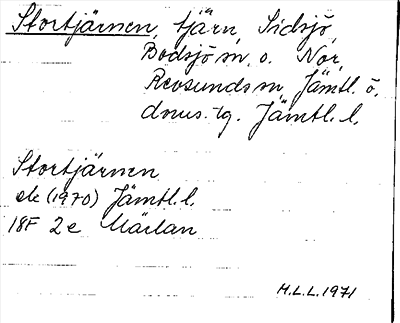 Stortjärnen, tjärn, Sidsjö,
Bodsjö sn, o. Nor,
Revsunds sn, Jämtl. ö.
dms. tg. Jämtl. l.
Stortjärnen
ek (1970) Jämtl. l.
18F 2e Märlan
M.L.L. 1971